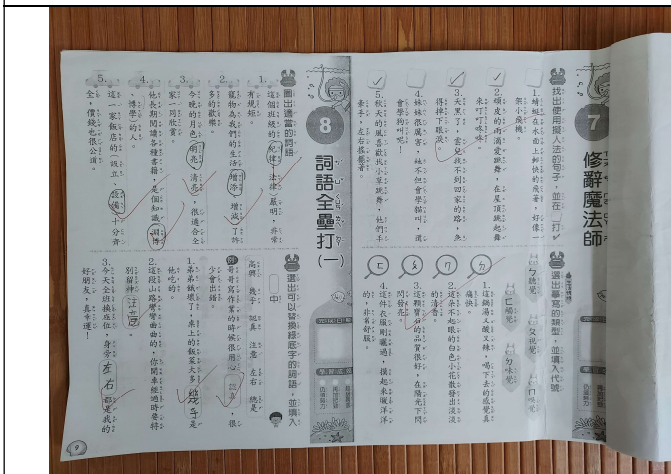 7
修辭魔法師
找出使用擬人法的句子，並在□打✓
1.蜻蜓在水面上輕快的飛著，好像一
架小飛機。
2.頑皮的雨滴愛跳舞，在屋頂跳起舞
來叮咚響。
3.天黑了，雲兒找不到回家的路，急
得掉下眼淚。
4.妹妹很厲害，她不但會學貓叫，還
會學狗叫呢！
5.秋天的風喜歡找小草跳舞，他們手
牽手，左右搖擺著。
選出摹寫的類型，並填入代號
ㄅ聽覺
ㄆ視覺
ㄇ嗅覺
ㄈ觸覺
ㄉ味覺
ㄉ
1.這鍋湯又酸又辣，喝下去的感覺真
痛快。
ㄇ
2.這朵不起眼的白色小花散發出淡淡
的清香。
ㄆ
3.這顆寶石的品質很好，在陽光下閃
閃發亮。
ㄈ
4.這件衣服剛曬過，摸起來暖洋洋
的，非常舒服。
8
詞語全壘打(一)
圈出適當的詞語
1.這個班級的(紀律、法律)嚴明，非常
有規矩。
2.寵物為我們的生活(增添、增減)了許
多的歡樂。
3.今晚的月色(明亮、清亮)，很適合全
家一同欣賞。
4.他長期閱讀各種書籍，是個知識(淵博、
博學)的人。
5.這一家飯店的(設立、設備)十分齊
全，價錢也很公道。
選出可以替換綠底字的詞語，並填入
□中
高興 幾乎 認真 注意 左右 總是
例 哥哥寫作業的時候很用心 認真，很
少會出錯。
1.弟弟餓壞了，桌上的飯菜大多 幾乎 是
他吃的。
2.這段山路彎彎曲曲的，你開車經過時要特
別留神 注意。
3.今天全班換座位，身旁 左右 都是我的
好朋友，真幸運！
9